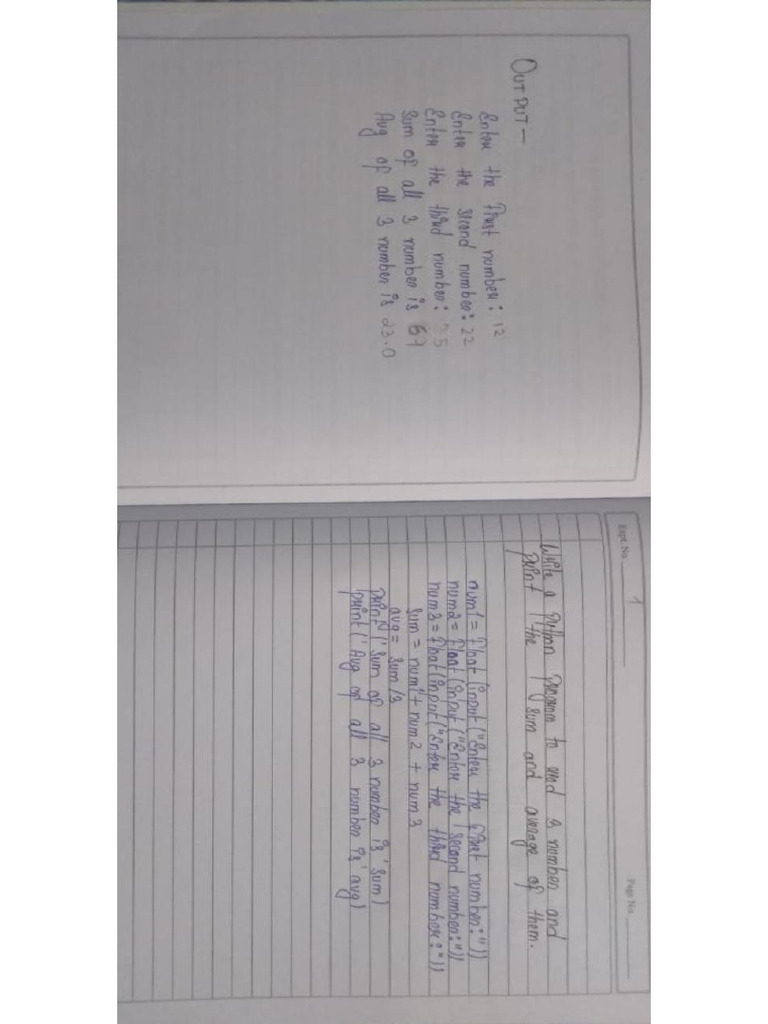 OUTPUT—
Enter the first number: 12
Enter the second number: 22
Enter the third number: 35
Sum of all 3 number is 69
Avg of all 3 number is 23.0
Expt. No. 1
Page No.
Write a Python Program to read 3 number and
print the sum and average of them.
num1 = float(input("Enter the first number:"))
num2 = float(input("Enter the second number:"))
num3 = float(input("Enter the third number:"))
sum = num1 + num2 + num3
avg = sum/3
print('Sum of all 3 number is' sum)
print('Avg of all 3 number is' avg)